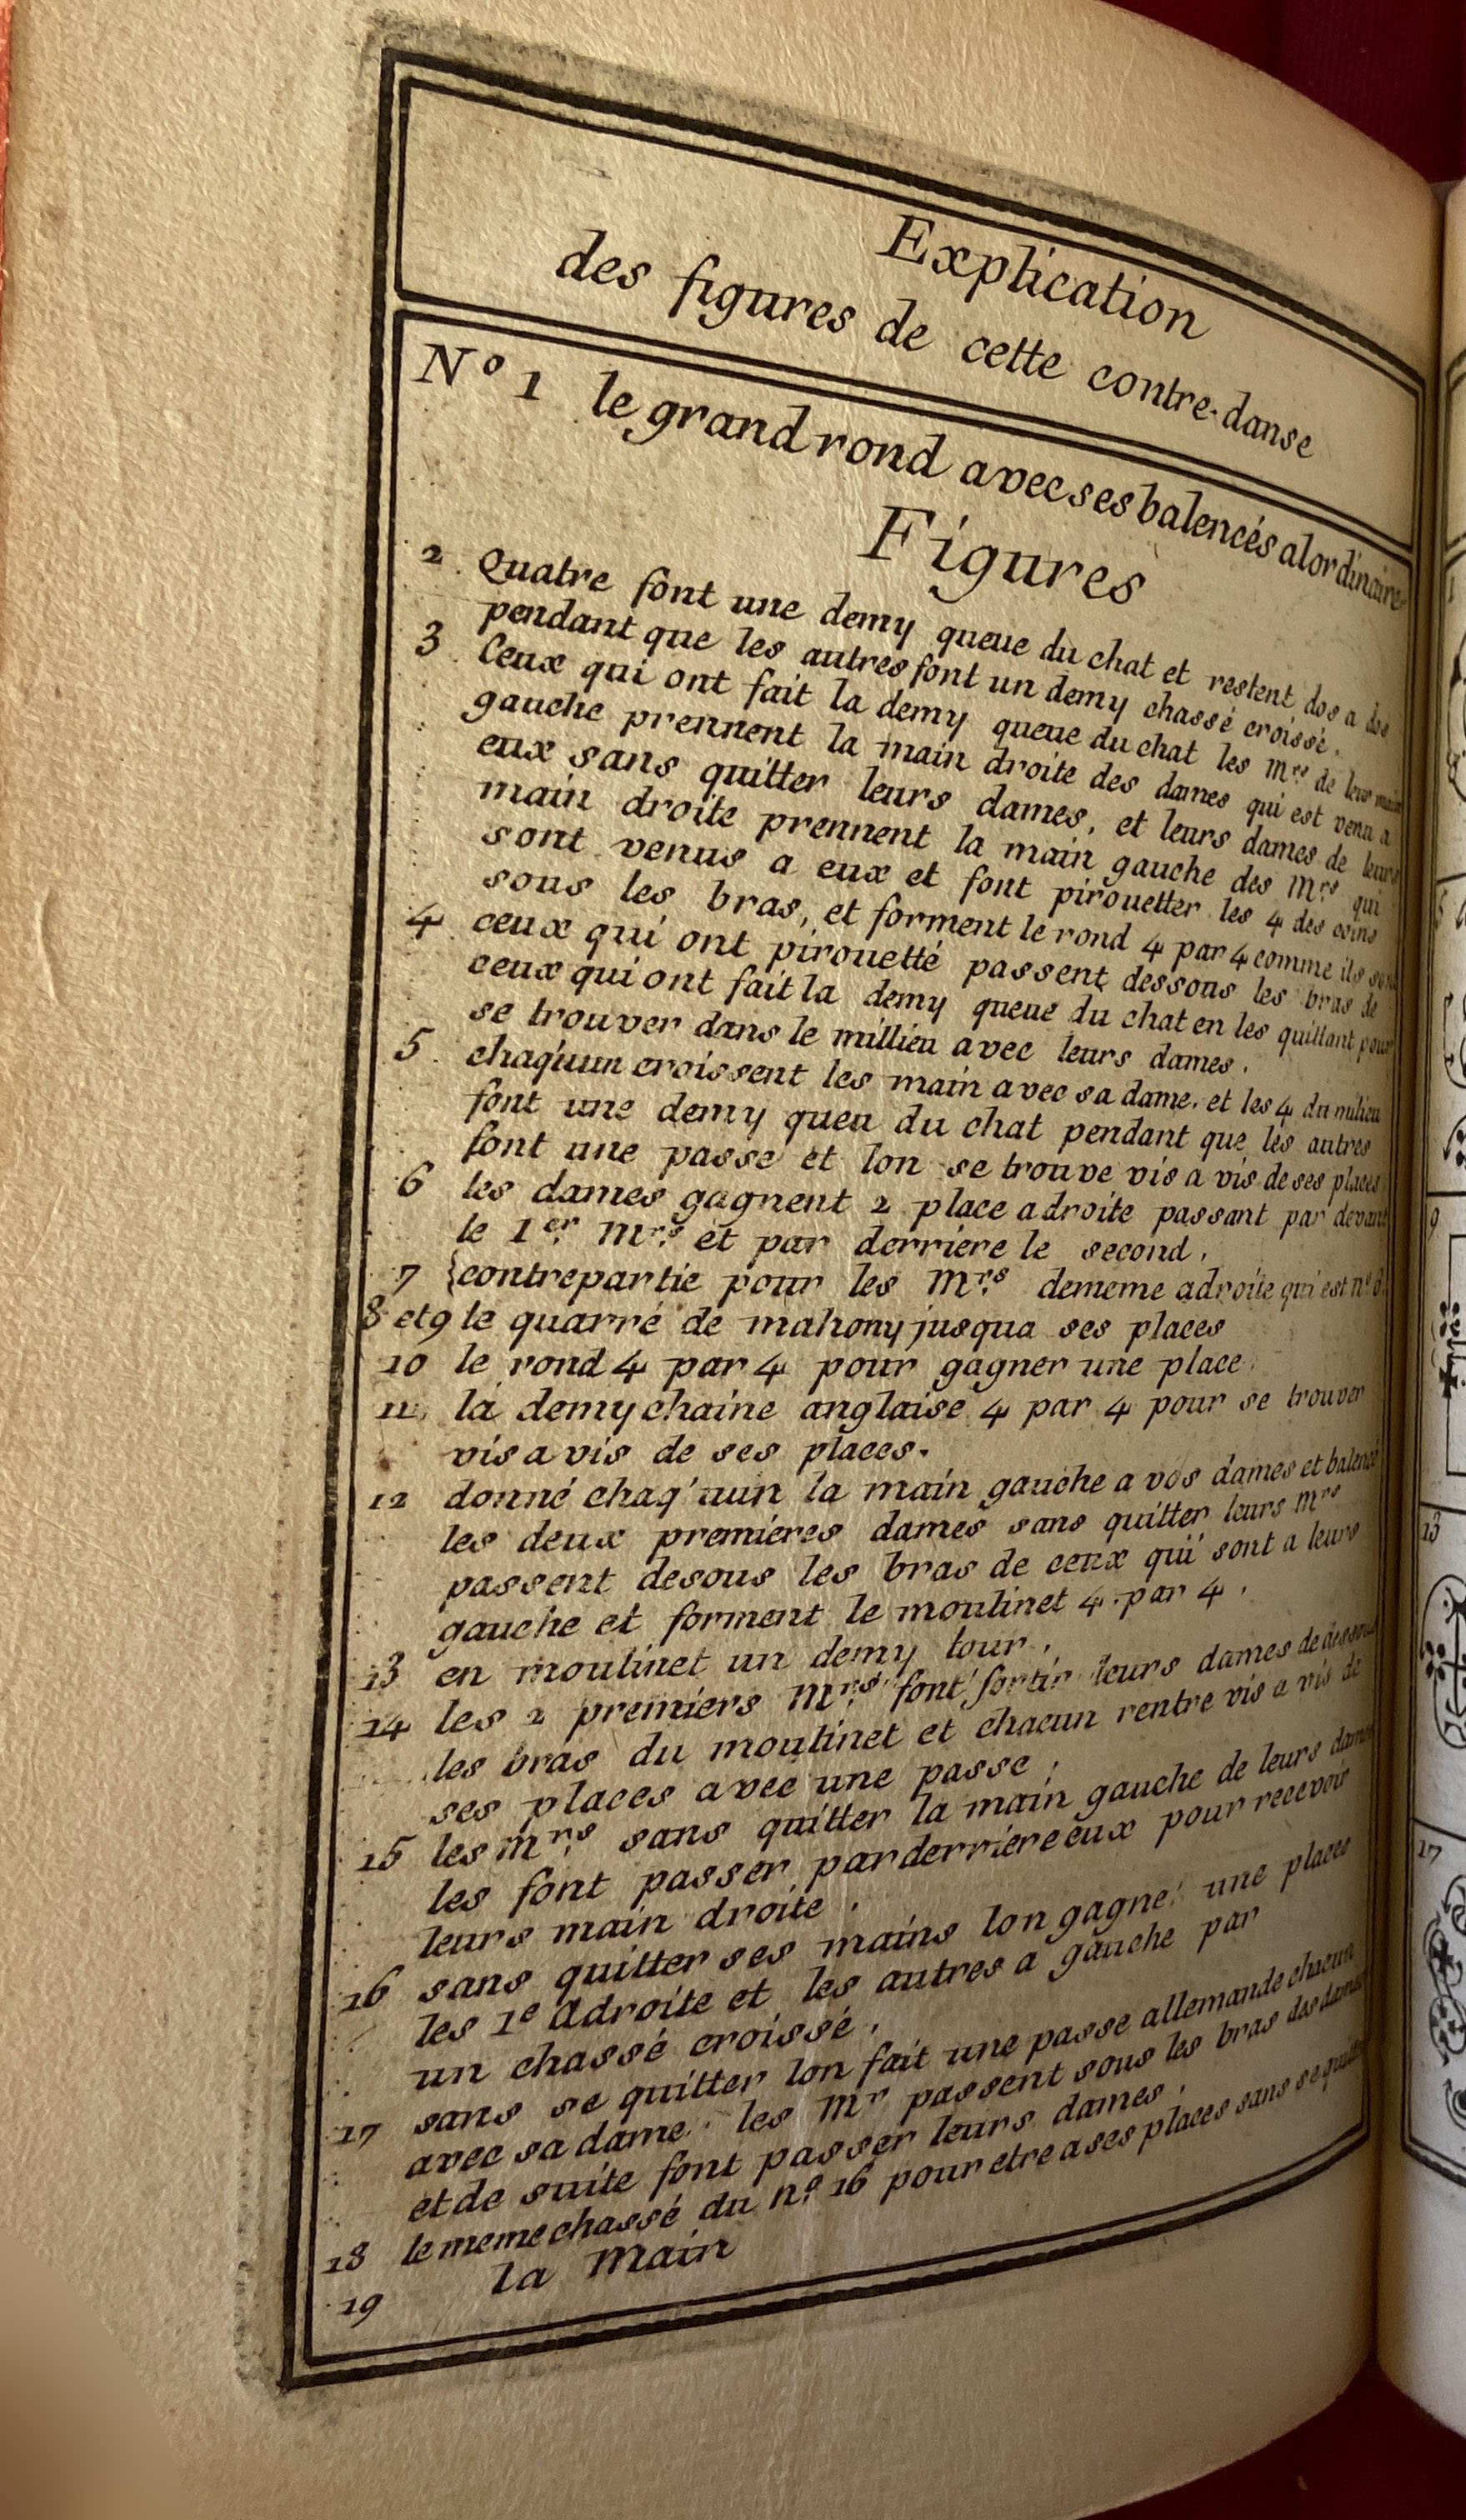 Explication
des figures de cette contre-danse
N.º 1 le grand rond avec ses balencés a lordinaire
Figures
2. Quatre font une demy queue du chat et restent dos a dos
pendant que les autres font un demy chassé croissé.
3. Ceux qui ont fait la demy queue du chat les Mrs de leur main
gauche prennent la main droite des dames qui est venu a
eux sans quitter leurs dames, et leurs dames de leurs
main droite prennent la main gauche des Mrs qui
sont venus a eux et font pirouetter les 4 des coins
sous les bras, et forment le rond 4 par 4 comme ils sont
4. ceux qui ont pirouetté passent dessous les bras de
ceux qui ont fait la demy queue du chat en les quittant pour
se trouver dans le millieu avec leurs dames.
5. chaq'uun croissent les main avec sa dame. et les 4 du milieu
font une demy queu du chat pendant que les autres
font une passe et lon se trouve vis a vis de ses places
6 les dames gagnent 2 place a droite passant par devant
le 1er. Mrs et par derriere le second.
7 {contrepartie pour les Mrs dememe a droite qui est nº
8 et 9 le quarré de mahony jusqua ses places
10 le rond 4 par 4 pour gagner une place
11. la demy chaine anglaise 4 par 4 pour se trouver
vis a vis de ses places.
12 donné chaq'uun la main gauche a vos dames et balencé
les deux premieres dames sans quitter leurs Mrs
passent desous les bras de ceux qui sont a leurs
gauche et forment le moulinet 4 par 4.
13 en moulinet un demy tour.
14 les 2 premiers Mrs font sortir leurs dames de dessous
les bras du moulinet et chacun rentre vis a vis de
ses places avec une passe.
15 les Mrs sans quitter la main gauche de leurs dames
les font passer par derriere eux pour recevoir
leurs main droite.
16 sans quitter ses mains lon gagne une places
les 1e a droite et les autres a gauche par
un chassé croissé.
17 sans se quitter lon fait une passe allemande chacun
avec sa dame. les Mr passent sous les bras des dames
et de suite font passer leurs dames.
18 le meme chassé du nº 16 pour etre a ses places sans se quitter
19 la Main
9
13
17